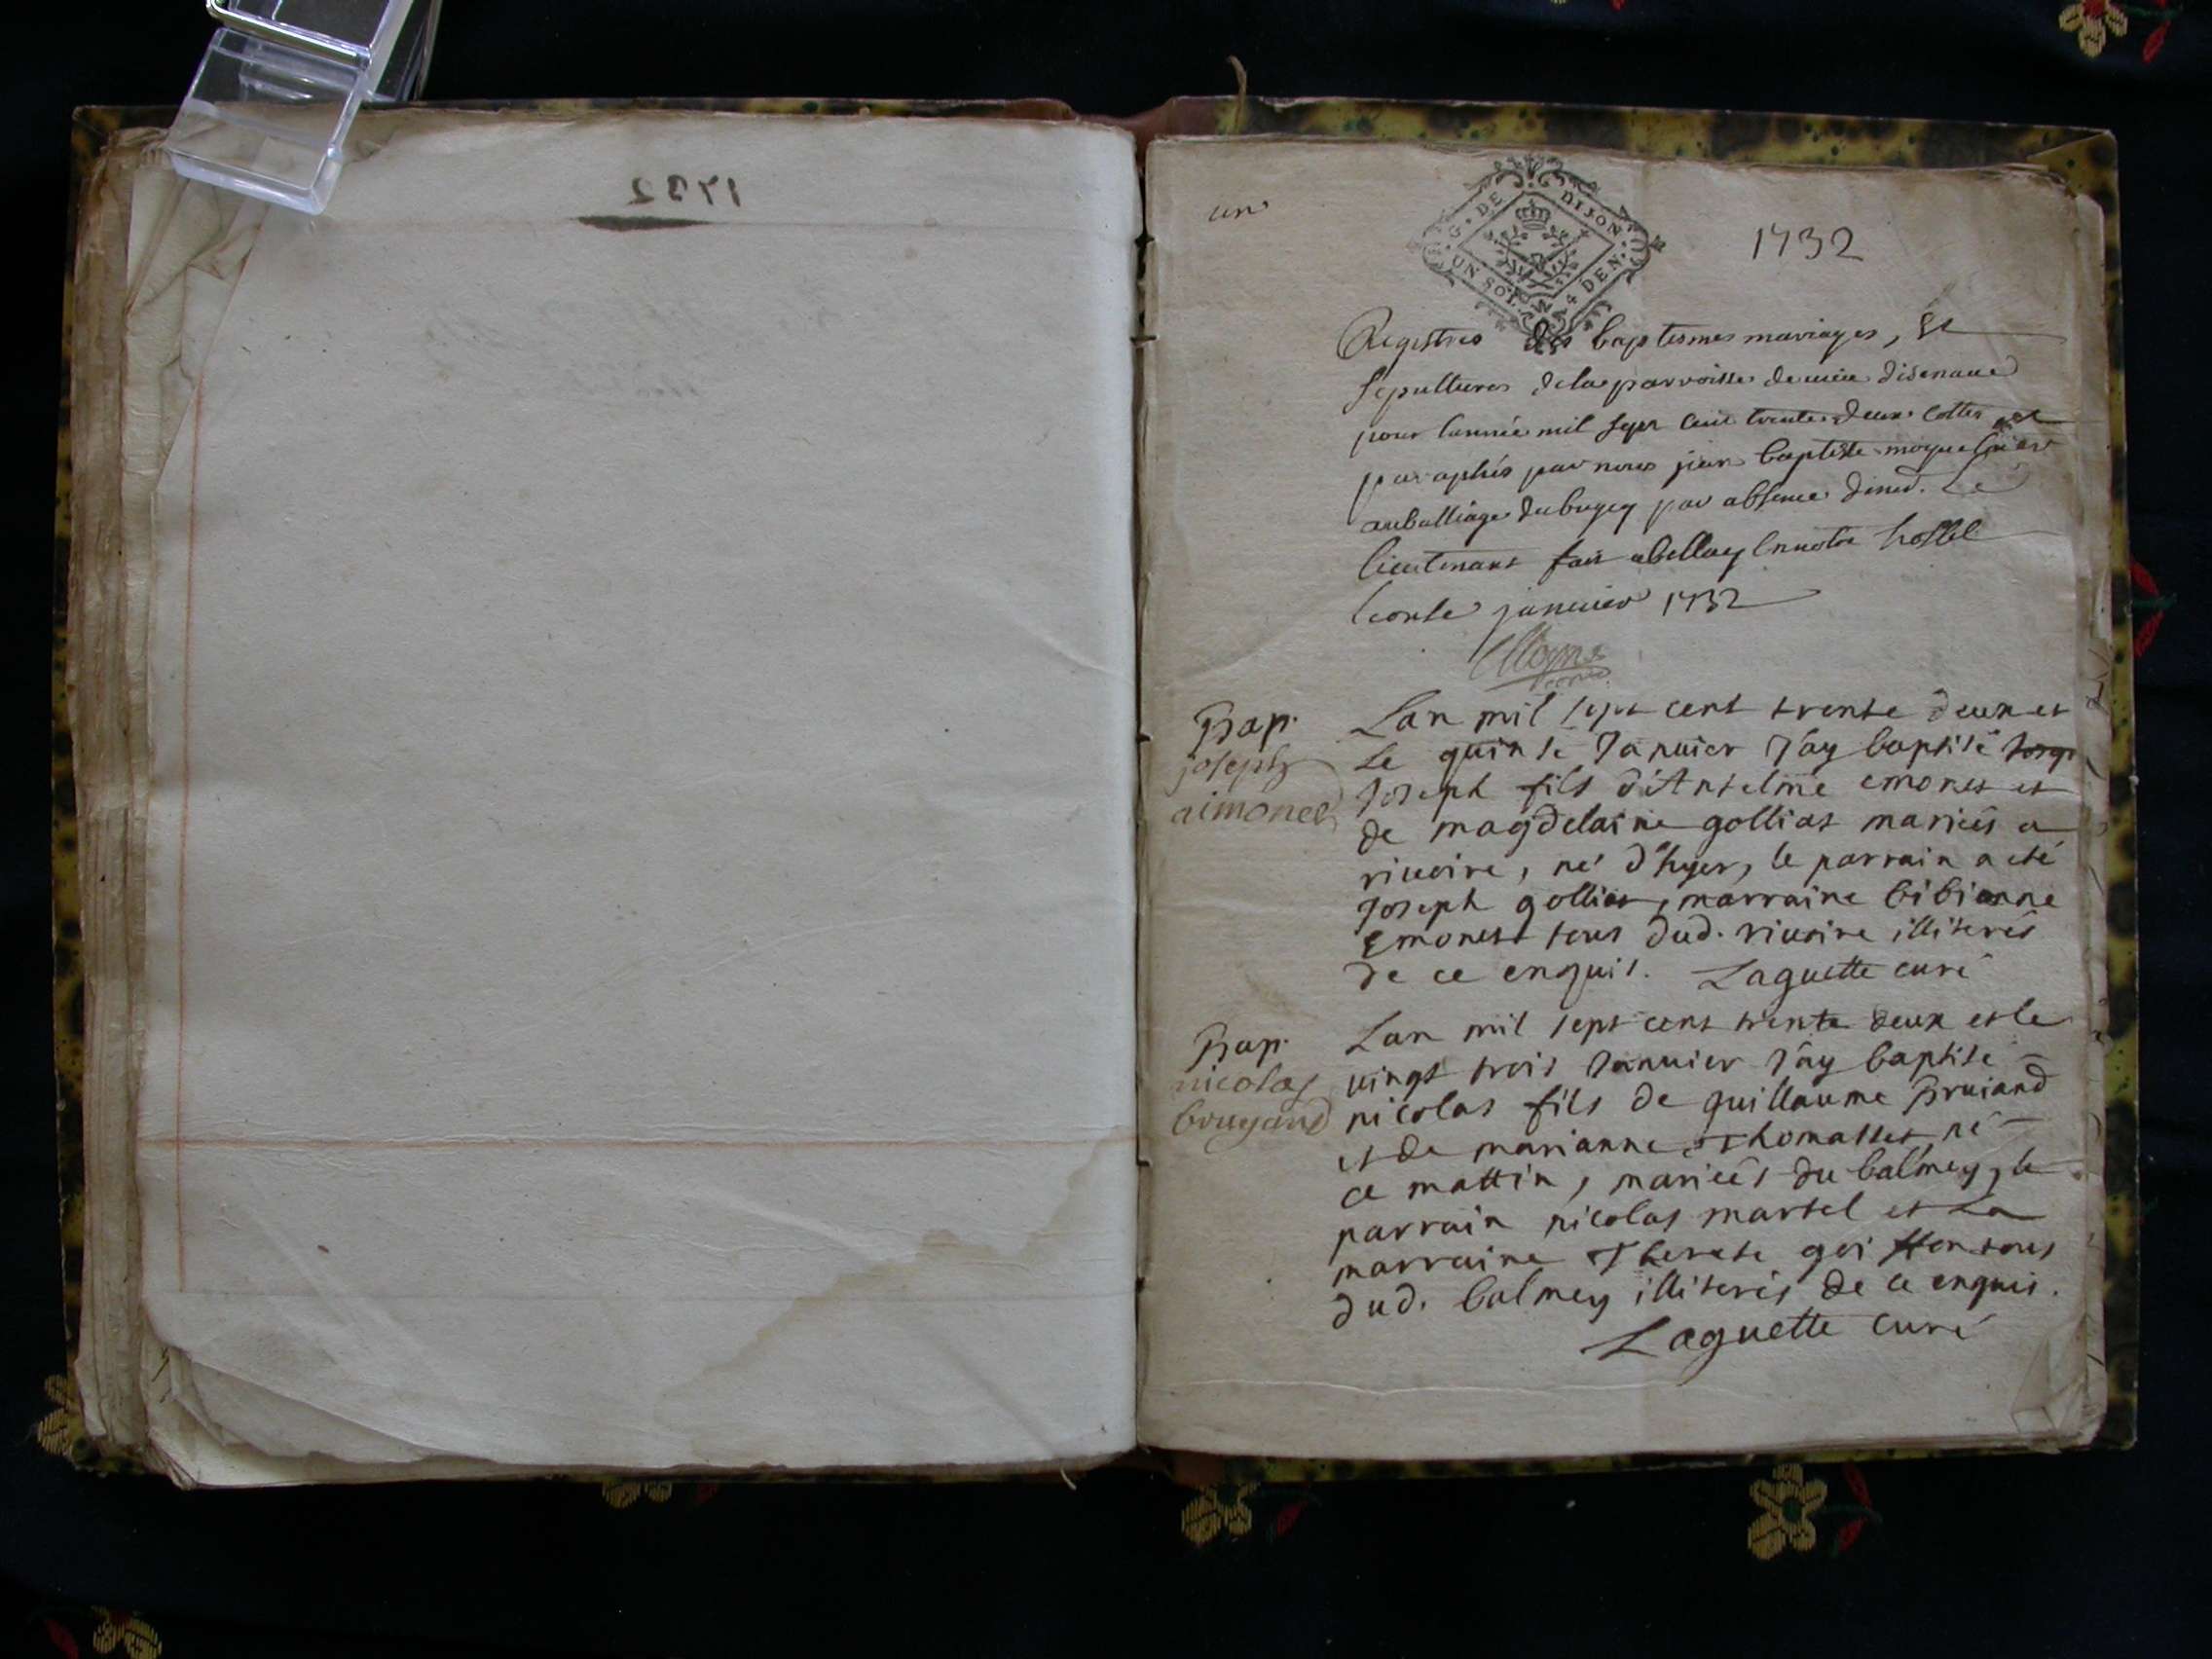 1732
un
G. DE DIJON
UN SOL 4 DEN.
1732
Registres des baptesmes mariages, Et
sepultures dela parroisse de
pour lannée mil sept cent trente deux cottés et
paraphés par nous jean baptiste
au balliage du bugey par absence de mr. Le
lieutenant fait a belley En notre hostel
janvier 1732
Bap. Lan mil sept cent trente deux et
joseph Le quinse Janvier J'ay baptisé
aimonet Joseph fils d'Antelme emonet et
de magdelaine golliat mariés a
rivoire, né d'hyer, le parrain a eté
Joseph golliat, marraine bibianne
Emonet tous dud. rivoire illiterés
de ce enquis. Laguette curé
Bap. Lan mil sept cent trente deux et le
nicolas vingt trois Janvier J'ay baptisé
bruyand nicolas fils de guillaume Bruiand
et de marianne Thomasset, né
ce mattin, mariés du balmey, le
parrain nicolas martel et La
marraine Therese tous
dud. balmey illiterés de ce enquis.
Laguette curé